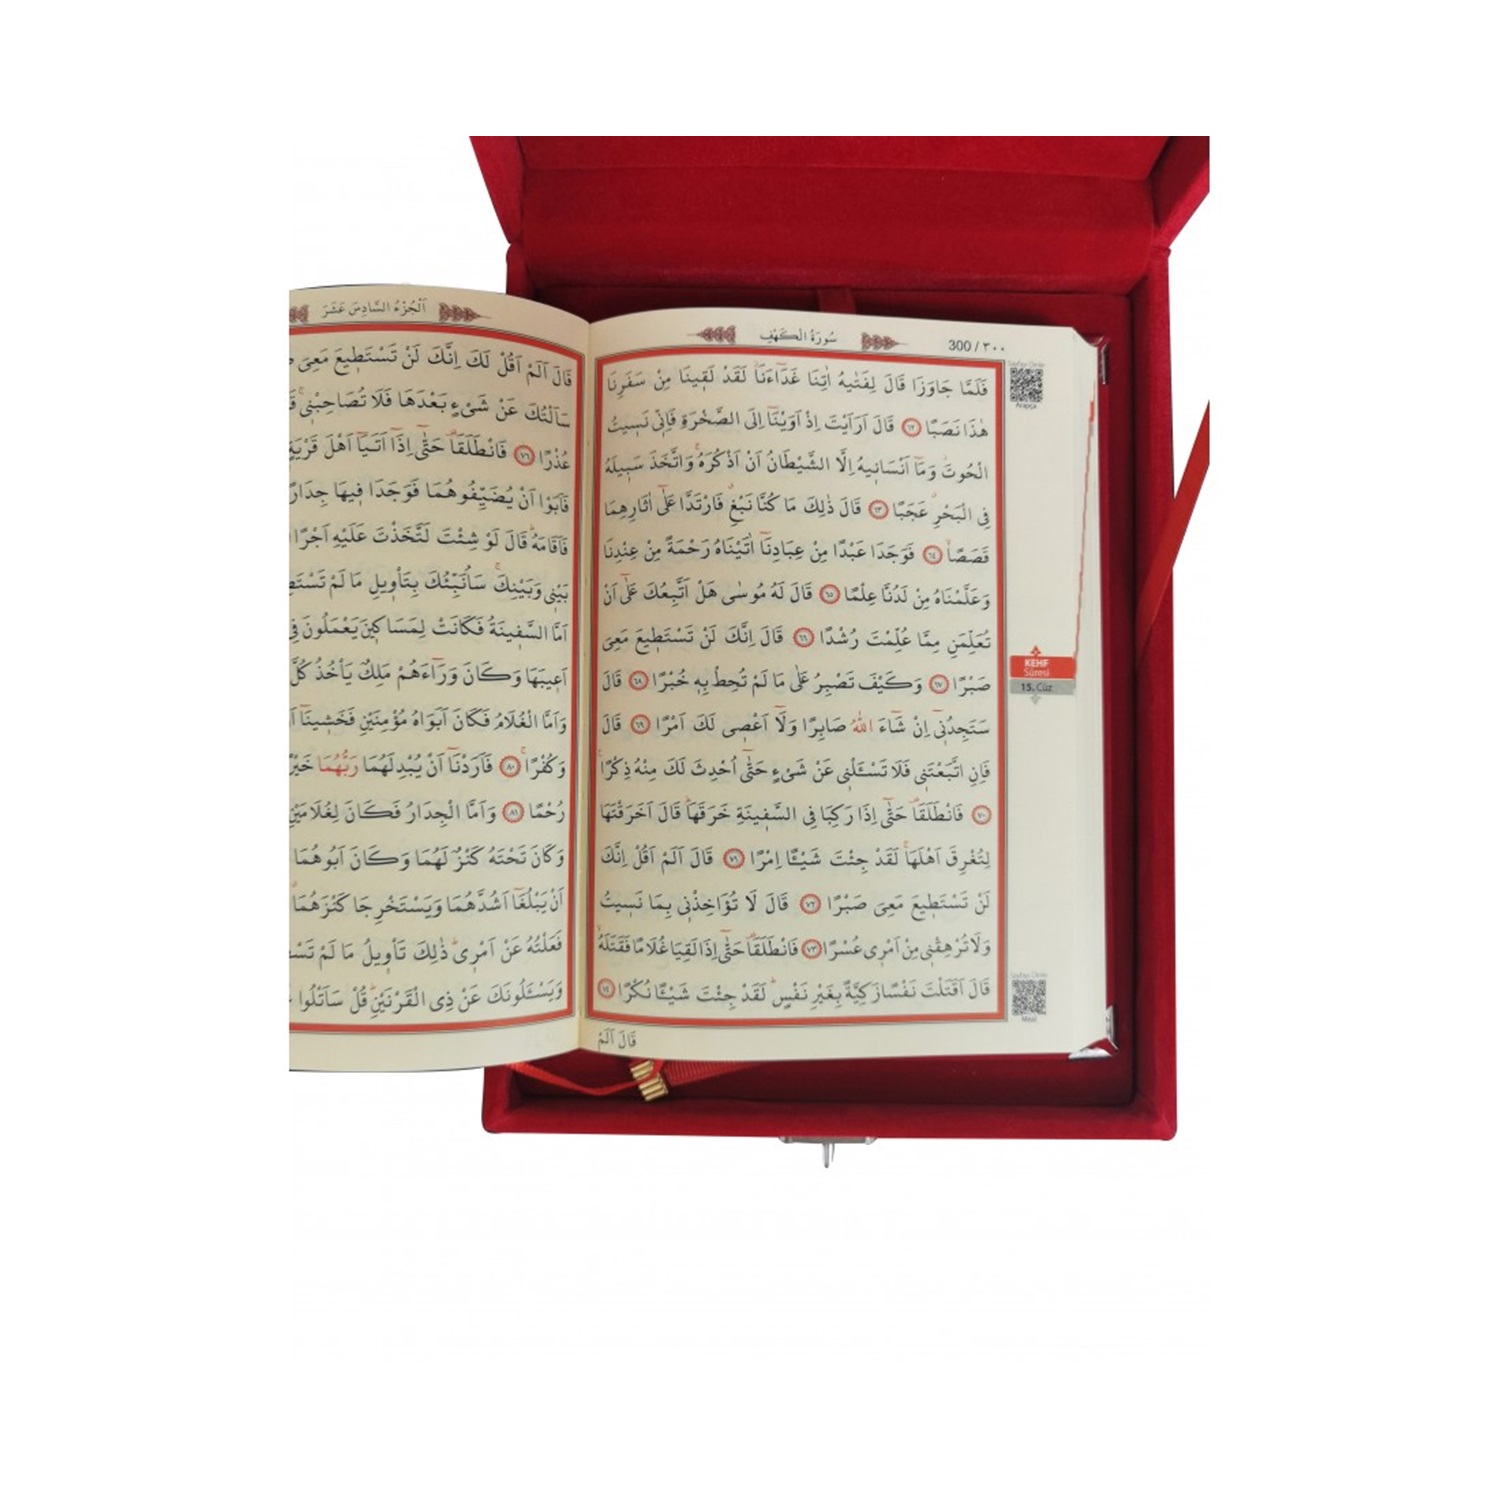 سُورَةُ الْكَهْفِ
300 / ٣٠٠
فَلَمَّا جَاوَزَا قَالَ لِفَتٰيهُ اٰتِنَا غَدَٓاءَنَاۘ لَقَدْ لَقٖينَا مِنْ سَفَرِنَا
هٰذَا نَصَبًا ﴿٦٢﴾ قَالَ اَرَاَيْتَ اِذْ اَوَيْنَٓا اِلَى الصَّخْرَةِ فَاِنّٖى نَسٖيتُ
الْحُوتَۘ وَمَٓا اَنْسَانٖيهُ اِلَّا الشَّيْطَانُ اَنْ اَذْكُرَهُۚ وَاتَّخَذَ سَبٖيلَهُ
فِى الْبَحْرِۗ عَجَبًا ﴿٦٣﴾ قَالَ ذٰلِكَ مَا كُنَّا نَبْغِۗ فَارْتَدَّا عَلٰٓى اٰثَارِهِمَا
قَصَصًاۙ ﴿٦٤﴾ فَوَجَدَا عَبْدًا مِنْ عِبَادِنَٓا اٰتَيْنَاهُ رَحْمَةً مِنْ عِنْدِنَا
وَعَلَّمْنَاهُ مِنْ لَدُنَّا عِلْمًا ﴿٦٥﴾ قَالَ لَهُ مُوسٰى هَلْ اَتَّبِعُكَ عَلٰٓى اَنْ
تُعَلِّمَنِ مِمَّا عُلِّمْتَ رُشْدًا ﴿٦٦﴾ قَالَ اِنَّكَ لَنْ تَسْتَطٖيعَ مَعِىَ
صَبْرًا ﴿٦٧﴾ وَكَيْفَ تَصْبِرُ عَلٰى مَا لَمْ تُحِطْ بِهٖ خُبْرًا ﴿٦٨﴾ قَالَ
سَتَجِدُنٖٓى اِنْ شَٓاءَ اللّٰهُ صَابِرًا وَلَٓا اَعْصٖى لَكَ اَمْرًا ﴿٦٩﴾ قَالَ
فَاِنِ اتَّبَعْتَنٖى فَلَا تَسْـَٔلْنٖى عَنْ شَىْءٍ حَتّٰٓى اُحْدِثَ لَكَ مِنْهُ ذِكْرًاۚ
﴿٧٠﴾ فَانْطَلَقَا۠ حَتّٰٓى اِذَا رَكِبَا فِى السَّفٖينَةِ خَرَقَهَاۜ قَالَ اَخَرَقْتَهَا
لِتُغْرِقَ اَهْلَهَاۚ لَقَدْ جِئْتَ شَيْـًٔا اِمْرًا ﴿٧١﴾ قَالَ اَلَمْ اَقُلْ اِنَّكَ
لَنْ تَسْتَطٖيعَ مَعِىَ صَبْرًا ﴿٧٢﴾ قَالَ لَا تُؤَاخِذْنٖى بِمَا نَسٖيتُ
وَلَا تُرْهِقْنٖى مِنْ اَمْرٖى عُسْرًا ﴿٧٣﴾ فَانْطَلَقَا۠ حَتّٰٓى اِذَا لَقِيَا غُلَامًا فَقَتَلَهُۙ
قَالَ اَقَتَلْتَ نَفْسًا زَكِيَّةً بِغَيْرِ نَفْسٍۜ لَقَدْ جِئْتَ شَيْـًٔا نُكْرًا ﴿٧٤﴾
قَالَ اَلَمْ
Arapça
KEHF
Sûresi
15. Cüz
Meal
اَلْجُزْءُ السَّادِسَ عَشَرَ
قَالَ اَلَمْ اَقُلْ لَكَ اِنَّكَ لَنْ تَسْتَطٖيعَ مَعِىَ
سَاَلْتُكَ عَنْ شَىْءٍ بَعْدَهَا فَلَا تُصَاحِبْنٖىۚ
عُذْرًا ﴿٧٦﴾ فَانْطَلَقَا۠ حَتّٰٓى اِذَٓا اَتَيَٓا اَهْلَ قَرْيَةٍ
فَاَبَوْا اَنْ يُضَيِّفُوهُمَا فَوَجَدَا فٖيهَا جِدَارًا
فَاَقَامَهُۜ قَالَ لَوْ شِئْتَ لَتَّخَذْتَ عَلَيْهِ اَجْرًا
بَيْنٖى وَبَيْنِكَۚ سَاُنَبِّئُكَ بِتَأْوٖيلِ مَا لَمْ
اَمَّا السَّفٖينَةُ فَكَانَتْ لِمَسَاكٖينَ يَعْمَلُونَ
اَعٖيبَهَا وَكَانَ وَرَٓاءَهُمْ مَلِكٌ يَأْخُذُ كُلَّ
وَاَمَّا الْغُلَامُ فَكَانَ اَبَوَاهُ مُؤْمِنَيْنِ فَخَشٖينَٓا
وَكُفْرًاۚ ﴿٨٠﴾ فَاَرَدْنَٓا اَنْ يُبْدِلَهُمَا رَبُّهُمَا
رُحْمًا ﴿٨١﴾ وَاَمَّا الْجِدَارُ فَكَانَ لِغُلَامَيْنِ
وَكَانَ تَحْتَهُ كَنْزٌ لَهُمَا وَكَانَ اَبُوهُمَا
اَنْ يَبْلُغَٓا اَشُدَّهُمَا وَيَسْتَخْرِجَا كَنْزَهُمَا
فَعَلْتُهُ عَنْ اَمْرٖىۜ ذٰلِكَ تَأْوٖيلُ مَا لَمْ
وَيَسْـَٔلُونَكَ عَنْ ذِى الْقَرْنَيْنِۜ قُلْ سَاَتْلُوا